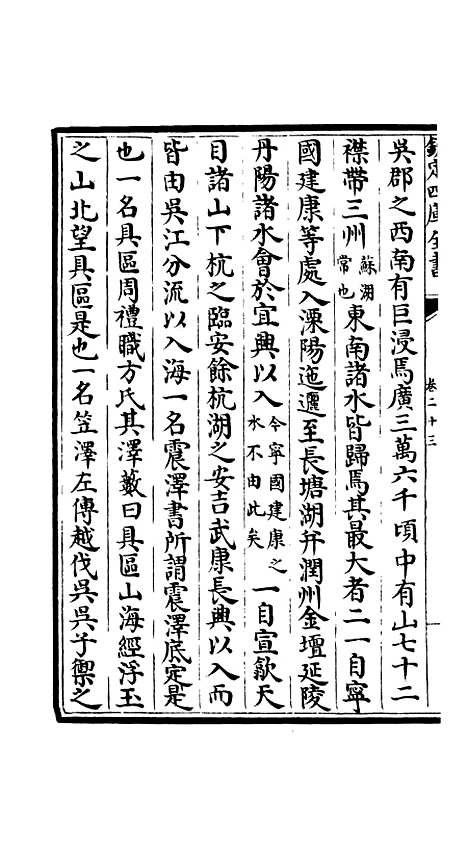 欽定四庫全書
卷二十三
吳郡之西南有巨浸焉廣三萬六千頃中有山七十二
襟帶三州蘇湖常也東南諸水皆歸焉其最大者二一自寧
國建康等處入溧陽迤邐至長塘湖并潤州金壇延陵
丹陽諸水會於宜興以入今寧國建康之水不由此矣一自宣歙天
目諸山下杭之臨安餘杭湖之安吉武康長興以入而
皆由吳江分流以入海一名震澤書所謂震澤底定是
也一名具區周禮職方氏其澤藪曰具區山海經浮玉
之山北望具區是也一名笠澤左傳越伐吳吳子禦之